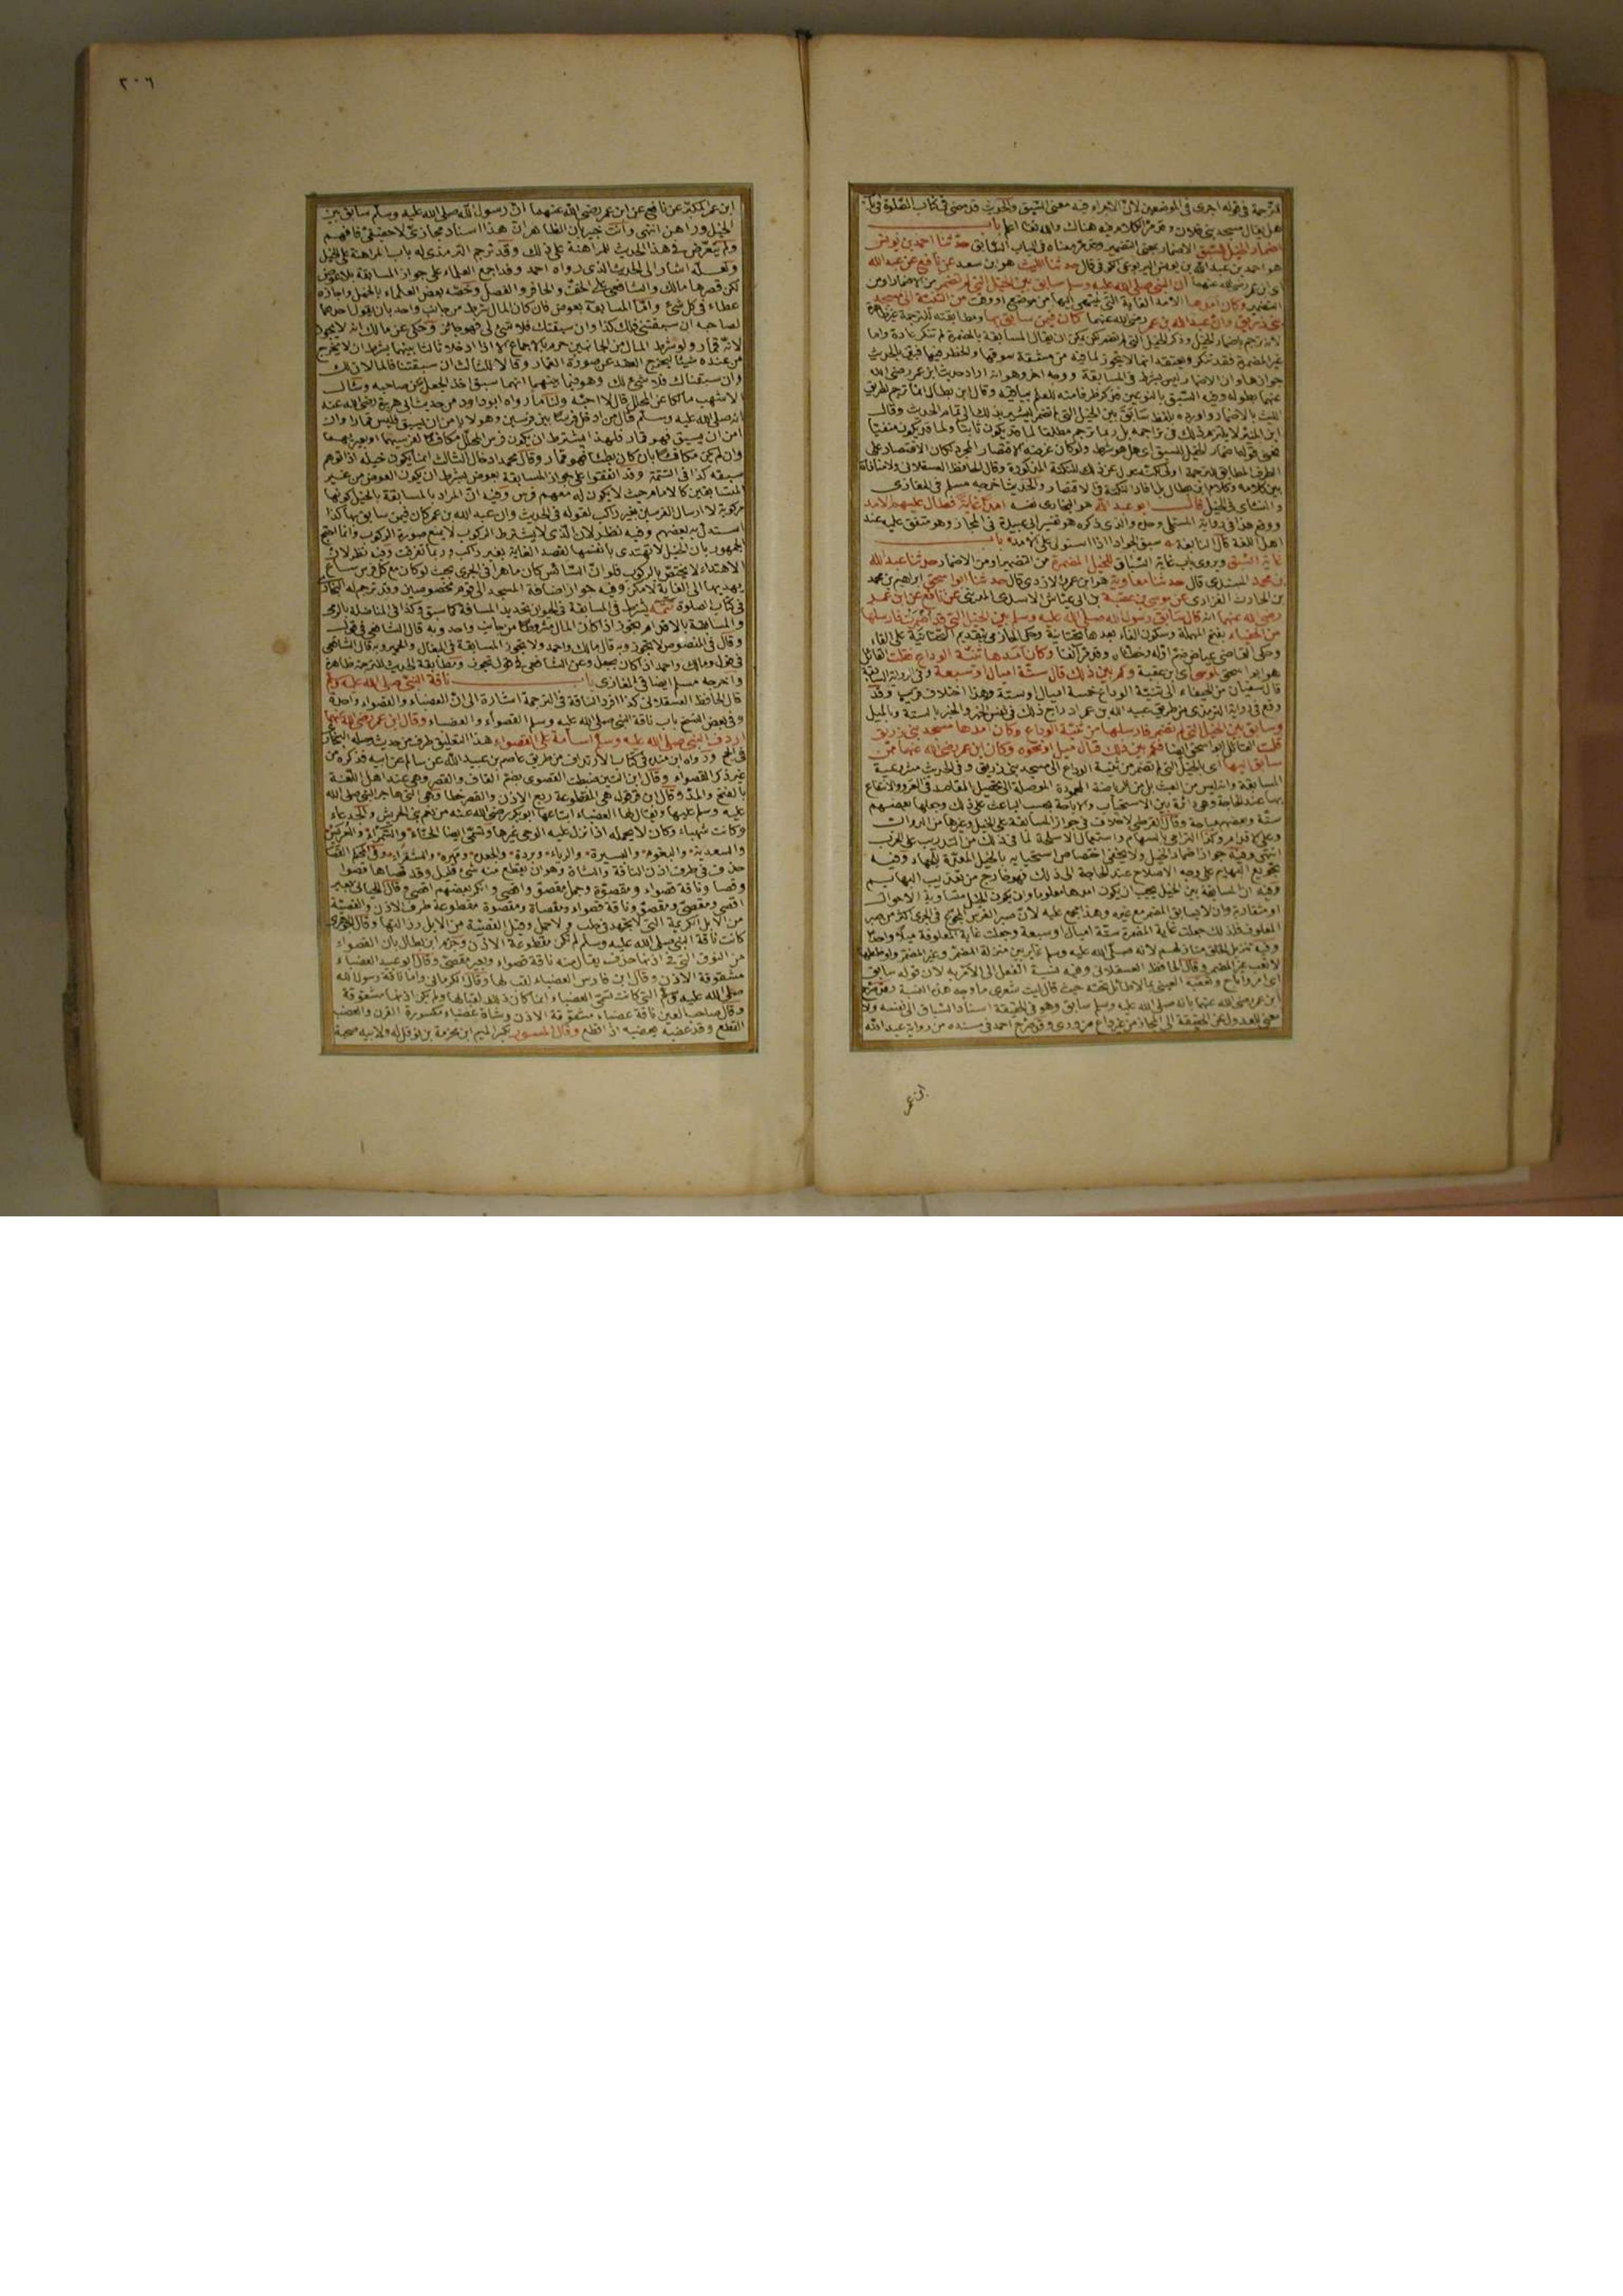 للترجمة في قوله اجرى في الموضعين لان الاجراء فيه معنى السبق والحديث قد مضى في كتاب الصلوة في باب
هل يقال مسجد بني فلان وقد مر الكلام فيه هناك والله تعالى اعلم باب
اضمار الخيل للسبق الاضمار بمعنى التضمير وقد مر معناه في الباب السابق حدثنا احمد بن يونس
هو احمد بن عبد الله بن يونس اليربوعي الكوفي قال حدثنا الليث هو ابن سعد عن نافع عن عبد الله
اي ابن عمر رضي الله عنهما ان النبي صلى الله عليه وسلم سابق بين الخيل التي لم تضمر من الاضمار او من
التضمير وكان امدها الامد الغاية التي ينتهي اليها من موضع او وقت من الثنية الى مسجد
بني زريق وان عبد الله بن عمر رضي الله عنهما كان فيمن سابق بها ومطابقته للترجمة غير ظاهرة
لانه ترجم باضمار الخيل وذكر الخيل التي لم تضمر
غير المضمرة فقد تنكر ويعتقد انها لا يجوز لما فيه من مشقة سوقها والخطر فيها فبين بالحديث
جوازها وان الاضمار ليس بشرط في المسابقة ووجه اخر وهو انه اراد حديث ابن عمر رضي الله
عنهما بطوله وفيه السبق بالنوعين فذكر طرفا منه للعلم بباقيه وقال ابن بطال انما ترجم لطريق
الليث بالاضمار واورده بلفظ سابق بين الخيل التي لم تضمر ليشير بذلك الى تمام الحديث وقال
ابن المنير لا يلتزم ذلك في تراجمه بل ربما ترجم مطلقا لما قد يكون ثابتا ولما قد يكون منفيا
فمعنى قوله اضمار الخيل للسبق اي هل هو شرط
بين كلامه وكلام ابن بطال بل افاد النكتة في الاقتصار والحديث اخرجه مسلم في المغازي
والنسائي في الخيل قال ابو عبد الله هو البخاري نفسه امدا غاية فطال عليهم الامد
ووقع هذا في رواية المستملي وحده والذي ذكره هو تفسير ابي عبيدة في المجاز وهو متفق عليه عند
اهل اللغة قال النابغة سبق الجواد اذا استولى على الامد باب
غاية السبق ويروى باب غاية السباق للخيل المضمرة من التضمير او من الاضمار حدثنا عبد الله
بن محمد المسندي قال حدثنا معاوية هو ابن عمرو الازدي قال حدثنا ابو اسحق ابراهيم بن محمد
بن الحارث الفزاري عن موسى بن عقبة بن ابي عياش الاسدي المديني عن نافع عن ابن عمر
رضي الله عنهما انه قال سابق رسول الله صلى الله عليه وسلم بين الخيل التي قد اضمرت فارسلها
من الحفياء بفتح المهملة وسكون الفاء بعدها تحتانية وحكى الحازمي بتقديم التحتانية على الفاء
وحكى القاضي عياض ضم اوله وخطأه وقد مر آنفا وكان امدها ثنية الوداع فقلت القائل
هو ابو اسحق لموسى اي ابن عقبة وكم بين ذلك قال ستة اميال او سبعة وفي الرواية السابقة
قال سفيان من الحفياء الى ثنية الوداع خمسة اميال او ستة وهذا اختلاف قريب وقد
وقع في رواية الترمذي من طريق عبيد الله بن عمر ادراج ذلك في نفس الخبر والخبر بالستة وبالميل
وسابق بين الخيل التي لم تضمر فارسلها من ثنية الوداع وكان امدها مسجد بني زريق
قلت القائل ابو اسحق ايضا فكم بين ذلك قال ميل او نحوه وكان ابن عمر رضي الله عنهما ممن
سابق فيها اي الخيل التي لم تضمر من ثنية الوداع الى مسجد بني زريق وفي الحديث مشروعية
المسابقة وانه ليس من العبث بل من الرياضة المحمودة الموصلة الى تحصيل المقاصد في الغزو والانتفاع
بها عند الحاجة وهي دائرة بين الاستحباب والاباحة بحسب الباعث على ذلك وجعلها بعضهم
سنة وبعضهم مباحة وقال القرطبي لا خلاف في جواز المسابقة على الخيل وغيرها من الدواب
وعلى الاقدام وكذا الترامي بالسهام واستعمال الاسلحة لما في ذلك من التدريب على الحرب
انتهى وفيه جواز اضمار الخيل ولا يخفى اختصاص استحبابه بالخيل المعدة للجهاد وفيه
تجويع البهائم على وجه الاصلاح عند الحاجة الى ذلك فهو خارج من تعذيب البهائم
وفيه ان المسابقة بين الخيل يجب ان يكون امدها معلوما وان يكون الخيل متساوية الاحوال
او متقاربة وان لا يسابق المضمر مع غيره وهذا مجمع عليه لان صبر الفرس المجوع في الجري اكثر من صبر
المعلوف فلذلك جعلت غاية المضمرة ستة اميال او سبعة وجعلت غاية المعلوفة ميلا واحدا
وفيه تنزيل الخلق منازلهم لانه صلى الله عليه وسلم غاير بين منزلة المضمر وغير المضمر ولو خلطهما
لاتعب غير المضمر وقال الحافظ العسقلاني وفيه نسبة الفعل الى الآمر به لان قوله سابق
اي امر واباح وتعقبه العيني بما لا طائل تحته حيث قال ليت شعري ما وجه هذه النسبة وقد صرح
ابن عمر رضي الله عنهما بانه صلى الله عليه وسلم سابق وهو في الحقيقة اسناد السباق الى نفسه ولا
معنى للعدول عن الحقيقة الى المجاز من غير داع ضروري وقد صرح احمد في مسنده من رواية عبد الله
ابن عمر
٣٠٦
ابن عمر المكبر عن نافع عن ابن عمر رضي الله عنهما ان رسول الله صلى الله عليه وسلم سابق بين
الخيل وراهن انتهى وانت خبير بان الظاهر ان هذا اسناد مجازي لا حقيقي فافهم
ولم يتعرض في هذا الحديث للمراهنة على ذلك وقد ترجم الترمذي له باب المراهنة على الخيل
ولعله اشار الى الحديث الذي رواه احمد وقد اجمع العلماء على جواز المسابقة بلا عوض
لكن قصرها مالك والشافعي على الخف والحافر والنصل وخصه بعض العلماء بالخيل واجازه
عطاء في كل شيء واما المسابقة بعوض فان كان المال شرط من جانب واحد بان يقول احدهما
لصاحبه ان سبقتني فلك كذا وان سبقتك فلا شيء لي فهو جائز وحكى عن مالك انه لا يجوز
لانه قمار ولو شرط المال من الجانبين حرم بالاجماع الا اذا ادخلا ثالثا بينهما بشرط ان لا يخرج
من عنده شيئا ليخرج العقد عن صورة القمار وقالا للثالث ان سبقتنا فالمالان لك
وان سبقناك فلا شيء لك وهو فيما بينهما ايهما سبق اخذ الجعل عن صاحبه وسأل
الاشهب مالكا عن المحلل قال لا احبه ولنا ما رواه ابو داود من حديث ابي هريرة رضي الله عنه
انه صلى الله عليه وسلم قال من ادخل فرسا بين فرسين وهو لا يأمن ان يسبق فليس قمارا وان
امن ان يسبق فهو قمار فلهذا يشترط ان يكون فرس المحلل مكافئا لفرسيهما او بعيريهما
وان لم يكن مكافئا بان كان بطيئا فهو قمار وقال محمد ادخال الثالث انما يكون حيلة اذا توهم
سبقه كذا في التتمة وقد اتفقوا على جواز المسابقة بعوض بشرط ان يكون العوض من غير
المتسابقين كالامام حيث لا يكون له معهم فرس وفيه ان المراد بالمسابقة بالخيل كونها
مركوبة لا ارسال الفرسين بغير راكب لقوله في الحديث وان عبد الله بن عمر كان فيمن سابق بها كذا
استدل به بعضهم وفيه نظر لان الذي لا يشترط الركوب لا يمنع صورة الركوب وانما احتج
الجمهور بان الخيل لا تهتدي بانفسها لقصد الغاية بغير راكب وربما نفرت وفيه نظر لان
الاهتداء لا يختص بالركوب فلو ان السائس كان ماهرا في الجري بحيث لو كان مع كل فرس ساع
يهديها الى الغاية لامكن وفيه جواز اضافة المسجد الى قوم مخصوصين وقد ترجم له البخاري
في كتاب الصلوة تتمة يشترط في المسابقة في الحيوان تحديد المسافة كما سبق وكذا في المناضلة بالرمي
والمسابقة بالاقدام تجوز اذا كان المال مشروطا من جانب واحد وبه قال الشافعي في قول
وقال في المنصوص لا يجوز وبه قال مالك واحمد ولا يجوز المسابقة في البغال والحمير وبه قال الشافعي
في قول ومالك واحمد اذا كان بجعل وعن الشافعي في قول تجوز ومطابقة الحديث للترجمة ظاهرة
واخرجه مسلم ايضا في المغازي باب ناقة النبي صلى الله عليه وسلم
قال الحافظ العسقلاني كذا افرد الناقة في الترجمة اشارة الى ان العضباء والقصواء واحدة
وفي بعض النسخ باب ناقة النبي صلى الله عليه وسلم القصواء والعضباء وقال ابن عمر رضي الله عنهما
اردف النبي صلى الله عليه وسلم اسامة على القصواء هذا التعليق طرف من حديث وصله البخاري
في الحج ورواه ابن منده في كتاب الارداف من طريق عاصم بن عبيد الله عن سالم عن ابيه فذكره من
غير ذكر القصواء وقال ابن التين ضبطت القصوى بضم القاف والقصر وهي عند اهل اللغة
بالفتح والمد وقال ابن قرقول هي المقطوعة ربع الاذن والقصر خطأ وهي التي هاجر النبي صلى الله
عليه وسلم عليها ويقال لها العضباء ابتاعها ابو بكر رضي الله عنه من نعم بني الحريش والجدعاء
وكانت شهباء وكان لا يحمله اذا نزل عليه الوحي غيرها وتسمى ايضا الحناء والسمراء والعريس
والسعدية والبغوم واليسيرة والرياء وبردة والجعدة ومهرة والشقراء وفي المحكم القصا
حذف في طرف اذن الناقة والشاة وهو ان يقطع منه شيء قليل وقد قصاها قصوا
وقصا وناقة قصواء ومقصوة وجمل مقصو واقصى وانكر بعضهم اقصى وقال اللحياني بعير
اقصى ومقصى ومقصو وناقة قصواء ومقصاة ومقصوة مقطوعة طرف الاذن والقصية
من الابل الكريمة التي لا تجهد في حلب ولا حمل وقيل القصية من الابل رذالتها وقال الجوهري
كانت ناقة النبي صلى الله عليه وسلم لم تكن مقطوعة الاذن وجزم ابن بطال بان القصواء
من النوق التي في اذنها حذف يقال منه ناقة قصواء وبعير مقصى وقال ابو عبيد العضباء
مشقوقة الاذن وقال ابن فارس العضباء لقب لها وقال الكرماني واما ناقة رسول الله
صلى الله عليه وسلم التي كانت تسمى العضباء انما كان ذلك لقبا لها ولم يكن اذنها مشقوقة
وقال صاحب العين ناقة عضباء مشقوقة الاذن وشاة عضباء مكسورة القرن والعضب
القطع وقد عضبه يعضبه اذا قطع وقال المسور بكسر الميم ابن مخرمة بن نوفل له ولابيه صحبة